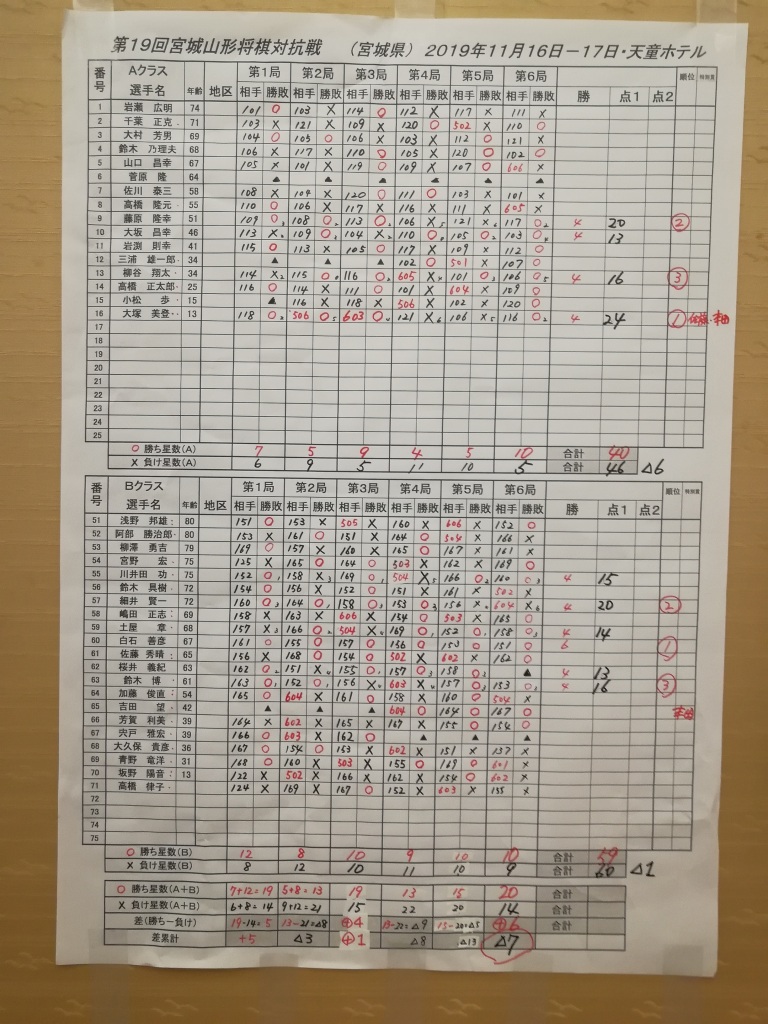 第19回宮城山形将棋対抗戦 （宮城県） 2019年11月16日－17日・天童ホテル
番号 Aクラス 選手名 年齢 地区 第1局 第2局 第3局 第4局 第5局 第6局 勝 点1 点2 順位 特別賞
相手 勝敗 相手 勝敗 相手 勝敗 相手 勝敗 相手 勝敗 相手 勝敗
1 岩瀬 広明 74 101 ○ 103 × 114 ○ 112 × 117 × 111 ×
2 千葉 正克 71 103 × 121 × 109 × 120 ○ 502 × 110 ○
3 大村 芳男 69 104 ○ 105 ○ 106 × 103 × 112 ○ 121 ×
4 鈴木 乃理夫 68 106 × 117 × 110 ○ 105 × 120 ○ 102 ○
5 山口 昌幸 67 105 × 101 × 119 ○ 109 × 107 ○ 606 ×
6 菅原 隆 64 ▲ ▲ ▲ ▲ ▲ ▲
7 佐川 泰三 58 108 × 104 × 120 ○ 111 ○ 103 × 101 ×
8 高橋 隆元 55 110 ○ 106 × 117 × 116 × 111 × 605 ×
9 藤原 隆幸 51 109 ○ 108 ○ 113 ○ 106 × 121 × 117 ○ 4 20 ②
10 大坂 昌幸 46 113 × 109 ○ 104 × 110 ○ 105 ○ 103 ○ 4 13
11 岩渕 則幸 41 115 ○ 113 × 105 ○ 117 × 109 × 112 ○
12 三浦 雄一郎 34 ▲ ▲ ▲ 102 ○ 501 × 107 ○
13 柳谷 翔太 34 114 × 115 ○ 116 ○ 605 × 101 ○ 106 ○ 4 16 ③
14 高橋 正太郎 25 116 ○ 114 × 111 ○ 101 × 604 × 109 ○
15 小松 歩 15 ▲ 116 × 118 × 506 × 102 × 120 ○
16 大塚 美登 13 118 ○ 506 ○ 603 ○ 121 × 106 × 116 ○ 4 24 ①
17
18
19
20
21
22
23
24
25
○ 勝ち星数(A) 7 5 9 4 5 10 合計 40
× 負け星数(A) 6 9 5 11 10 5 合計 46 △6
番号 Bクラス 選手名 年齢 地区 第1局 第2局 第3局 第4局 第5局 第6局 勝 点1 点2 順位 特別賞
相手 勝敗 相手 勝敗 相手 勝敗 相手 勝敗 相手 勝敗 相手 勝敗
51 浅野 邦雄 80 151 ○ 153 × 505 × 160 × 606 × 152 ○
52 阿部 勝治郎 80 153 × 161 ○ 162 ○ 164 ○ 504 × 166 ×
53 柳澤 勇吉 79 169 ○ 157 × 160 × 165 ○ 167 × 161 ×
54 宮野 宏 75 125 × 165 ○ 164 ○ 503 × 162 × 169 ○
55 川井田 功 75 152 ○ 158 × 169 ○ 504 × 166 ○ 160 ○ 4 15
56 鈴木 具樹 72 154 ○ 156 × 152 ○ 151 × 161 × 502 ×
57 細井 賢一 72 160 ○ 164 ○ 158 ○ 153 ○ 156 × 604 × 4 20 ②
58 嶋田 正志 69 158 × 163 × 606 × 154 ○ 503 × 165 ○
59 土屋 章 68 157 × 166 ○ 504 × 169 ○ 152 ○ 158 ○ 4 14
60 白石 善彦 67 161 ○ 155 ○ 157 ○ 156 ○ 153 ○ 151 ○ 6 ①
61 佐藤 秀晴 65 156 × 168 ○ 154 ○ 502 × 602 × 162 ○
62 桜井 義紀 63 162 ○ 151 × 155 ○ 157 ○ 158 ○ ▲ 4 13
63 鈴木 博 61 163 ○ 152 ○ 156 × 603 × 157 ○ 153 ○ 4 16 ③
64 加藤 俊直 54 165 ○ 604 × 161 ○ 158 × 160 ○ 504 ×
65 吉田 望 42 ▲ ▲ ▲ 604 ○ 164 ○ 167 ○
66 芳賀 利美 39 164 × 602 × 165 × 167 × 155 ○ 154 ○
67 宍戸 雅宏 39 166 ○ 603 × 162 ○ ▲ ▲ ▲
68 大久保 貴彦 36 167 ○ 154 ○ 153 × 602 × 151 × 157 ×
69 青野 竜洋 31 168 ○ 160 × 503 × 155 ○ 169 ○ 601 ×
70 坂野 陽音 13 122 × 502 × 166 × 162 × 154 ○ 602 ×
71 高橋 律子 124 × 169 × 167 ○ 152 × 603 × 155 ×
72
73
74
75
○ 勝ち星数(B) 12 8 10 9 10 10 合計 59
× 負け星数(B) 8 12 10 11 10 9 合計 60 △1
○ 勝ち星数(A+B) 7+12=19 5+8=13 19 13 15 20 合計
× 負け星数(A+B) 6+8=14 9+12=21 15 22 20 14 合計
差(勝ち－負け) 19-14=5 13-21=△8 ⊕4 13-22=△9 15-20=△5 ⊕6 合計
差累計 +5 △3 ⊕1 △8 △13 △7